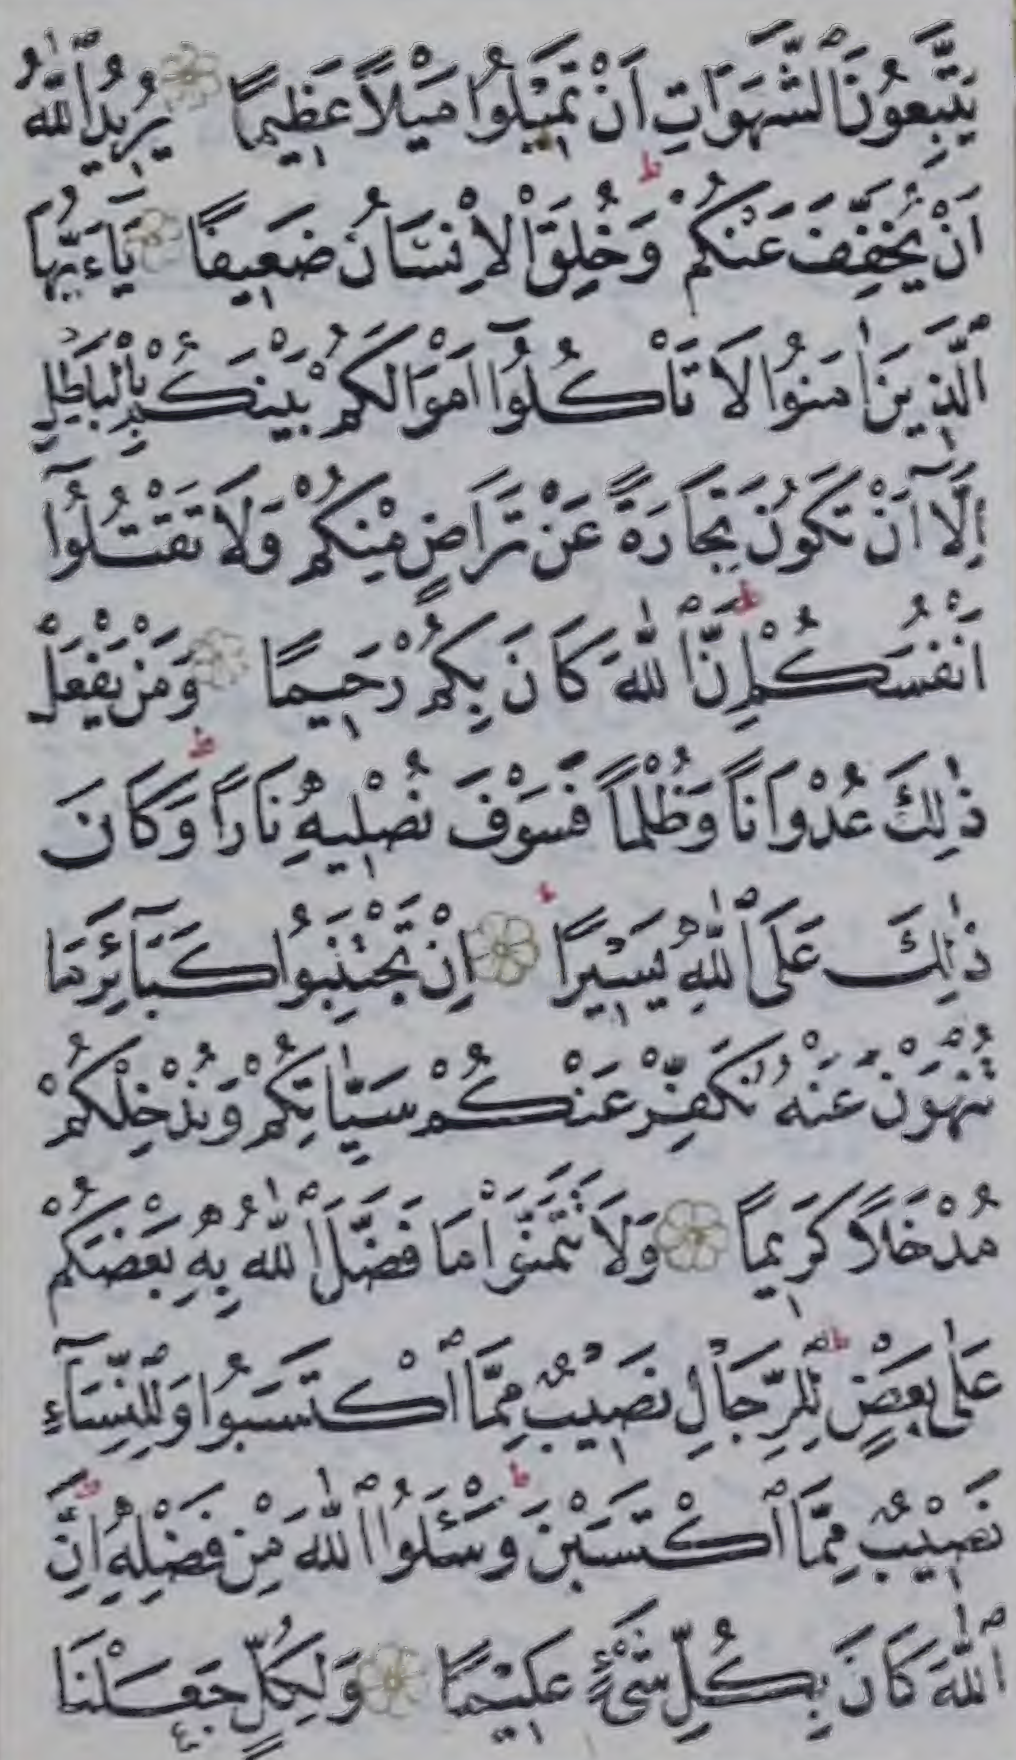 يَتَّبِعُونَ ٱلشَّهَوَاتِ اَنْ تَمِيْلُوا مَيْلاً عَظِيمًا ۞ يُرِيدُ ٱللّٰهُ
اَنْ يُخَفِّفَ عَنْكُمْ ۚ وَخُلِقَ ٱلْاِنْسَانُ ضَعِيفًا ۞ يَاءَيُّهَا
ٱلَّذِينَ اٰمَنُوا لَا تَاْكُلُوٓا اَمْوَالَكُمْ بَيْنَكُمْ بِالْبَاطِلِ
اِلَّآ اَنْ تَكُونَ تِجَارَةً عَنْ تَرَاضٍ مِنْكُمْ وَلَا تَقْتُلُوٓا
اَنْفُسَكُمْ ط اِنَّ ٱللّٰهَ كَانَ بِكُمْ رَحِيمًا ۞ وَمَنْ يَفْعَلْ
ذٰلِكَ عُدْوَانًا وَظُلْمًا فَسَوْفَ نُصْلِيهِ نَارًا ط وَكَانَ
ذٰلِكَ عَلَى ٱللّٰهِ يَسِيْرًا ۞ اِنْ تَجْتَنِبُوا كَبَآئِرَ مَا
تُنْهَوْنَ عَنْهُ نُكَفِّرْ عَنْكُمْ سَيِّاٰتِكُمْ وَنُدْخِلْكُمْ
مُدْخَلًا كَرِيمًا ۞ وَلَا تَتَمَنَّوْا مَا فَضَّلَ ٱللّٰهُ بِهِ بَعْضَكُمْ
عَلٰى بَعْضٍ ط لِلرِّجَالِ نَصِيْبٌ مِمَّا ٱكْتَسَبُوا وَلِلنِّسَآءِ
نَصِيْبٌ مِمَّا ٱكْتَسَبْنَ ط وَسْئَلُوا ٱللّٰهَ مِنْ فَضْلِهِ ط اِنَّ
ٱللّٰهَ كَانَ بِكُلِّ شَيْءٍ عَلِيْمًا ۞ وَلِكُلٍّ جَعَلْنَا